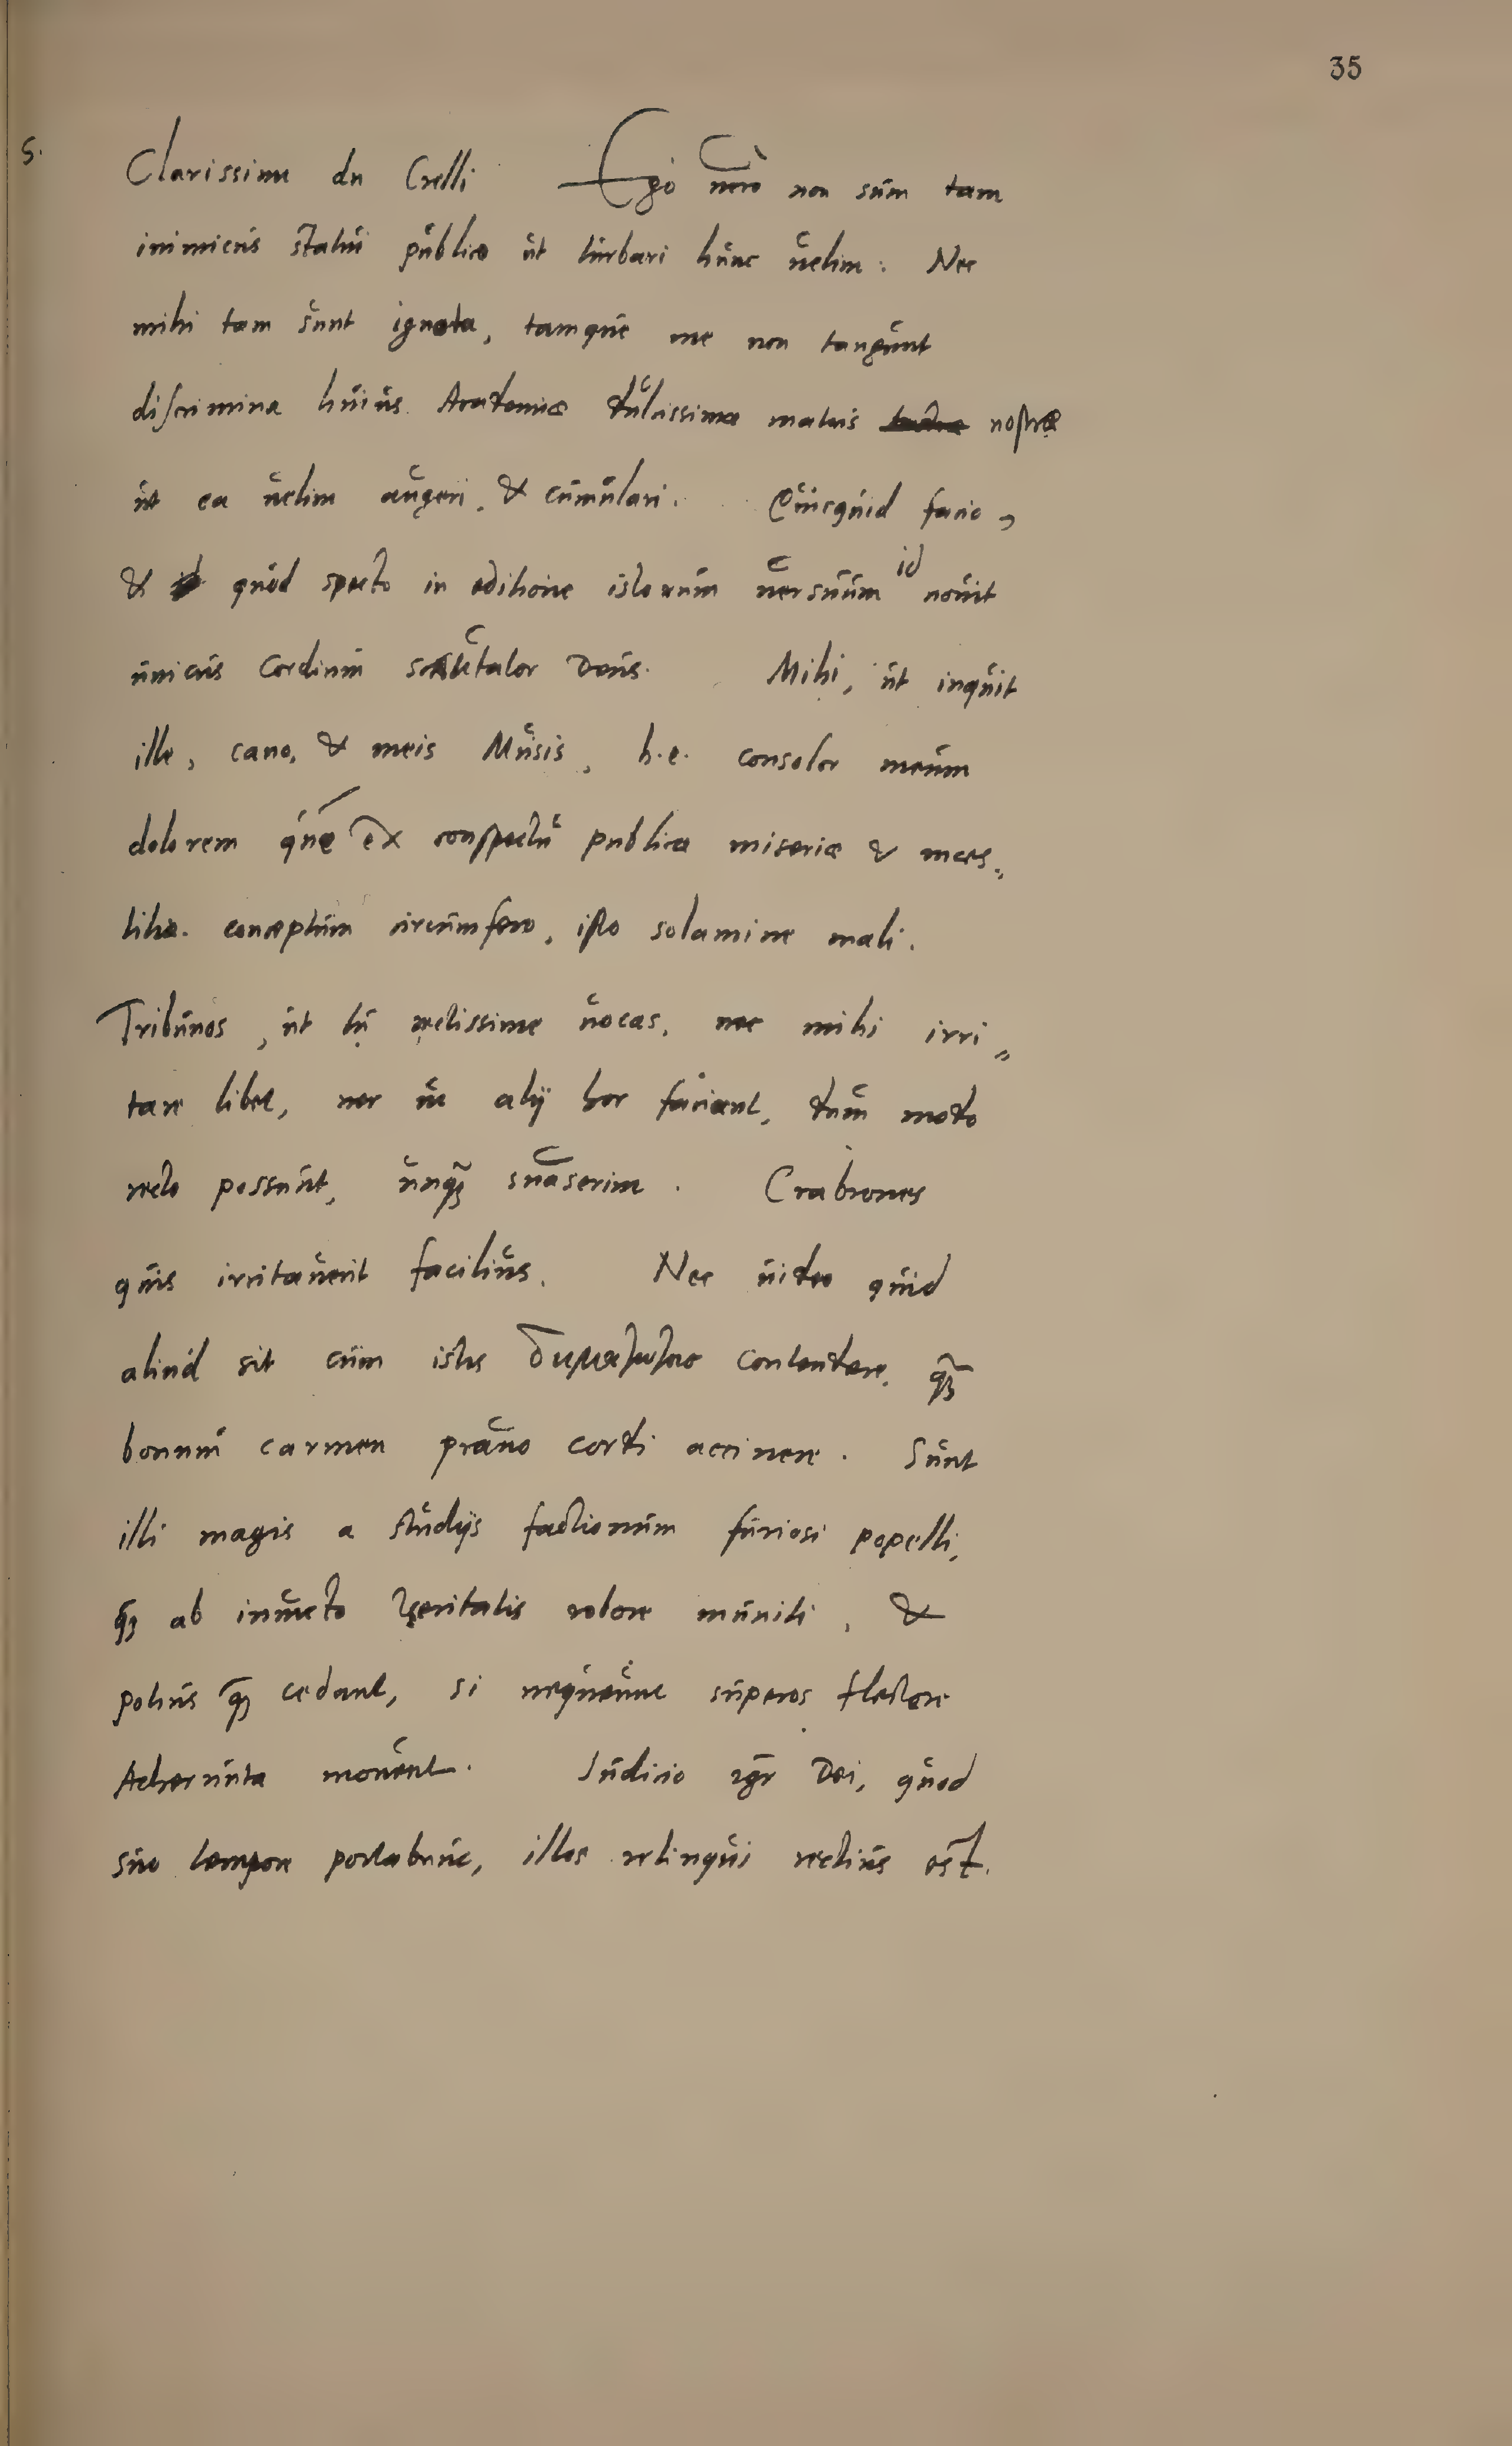 35
S. Clarissime dn Crelli Ego uero non sum tam
inimicus statui publico ut turbari hunc uelim: Nec
mihi tam sunt ignota, tamque me non tangunt
discrimina huius Academiæ dulcissimæ matris nostræ
ut ea uelim augeri, & cumulari. Quicquid facio,
& quod specto in editione istorum uersuum id nouit
unicus Cordium scrutator Deus. Mihi, ut inquit
ille, cano, & meis Musis, h.e. consolor meum
dolorem quē ex conspectu publicæ miseriæ & mæs„
titiæ conceptum circumfero, isto solamine mali.
Tribunos, ut tu rectissime uocas, nec mihi irri„
tare libet, nec ut alij hoc faciant, dum modo
recte possunt, unqꝫ suaserim. Crabrones
quis irritauerit facilius. Nec uideo quid
aliud sit cum istis contendere, qꝫ̃
bonum carmen prauo cordi accinere. Sunt
illi magis a studijs factionum furiosi popelli,
qꝫ̃ ab inuicto Veritatis robore muniti, &
potius qꝫ̃ cedant, si nequeunt superos flectere
Acherunta mouent. Iudicio igr Dei, quod
suo tempore portabunt, illos relinqui rectius est.